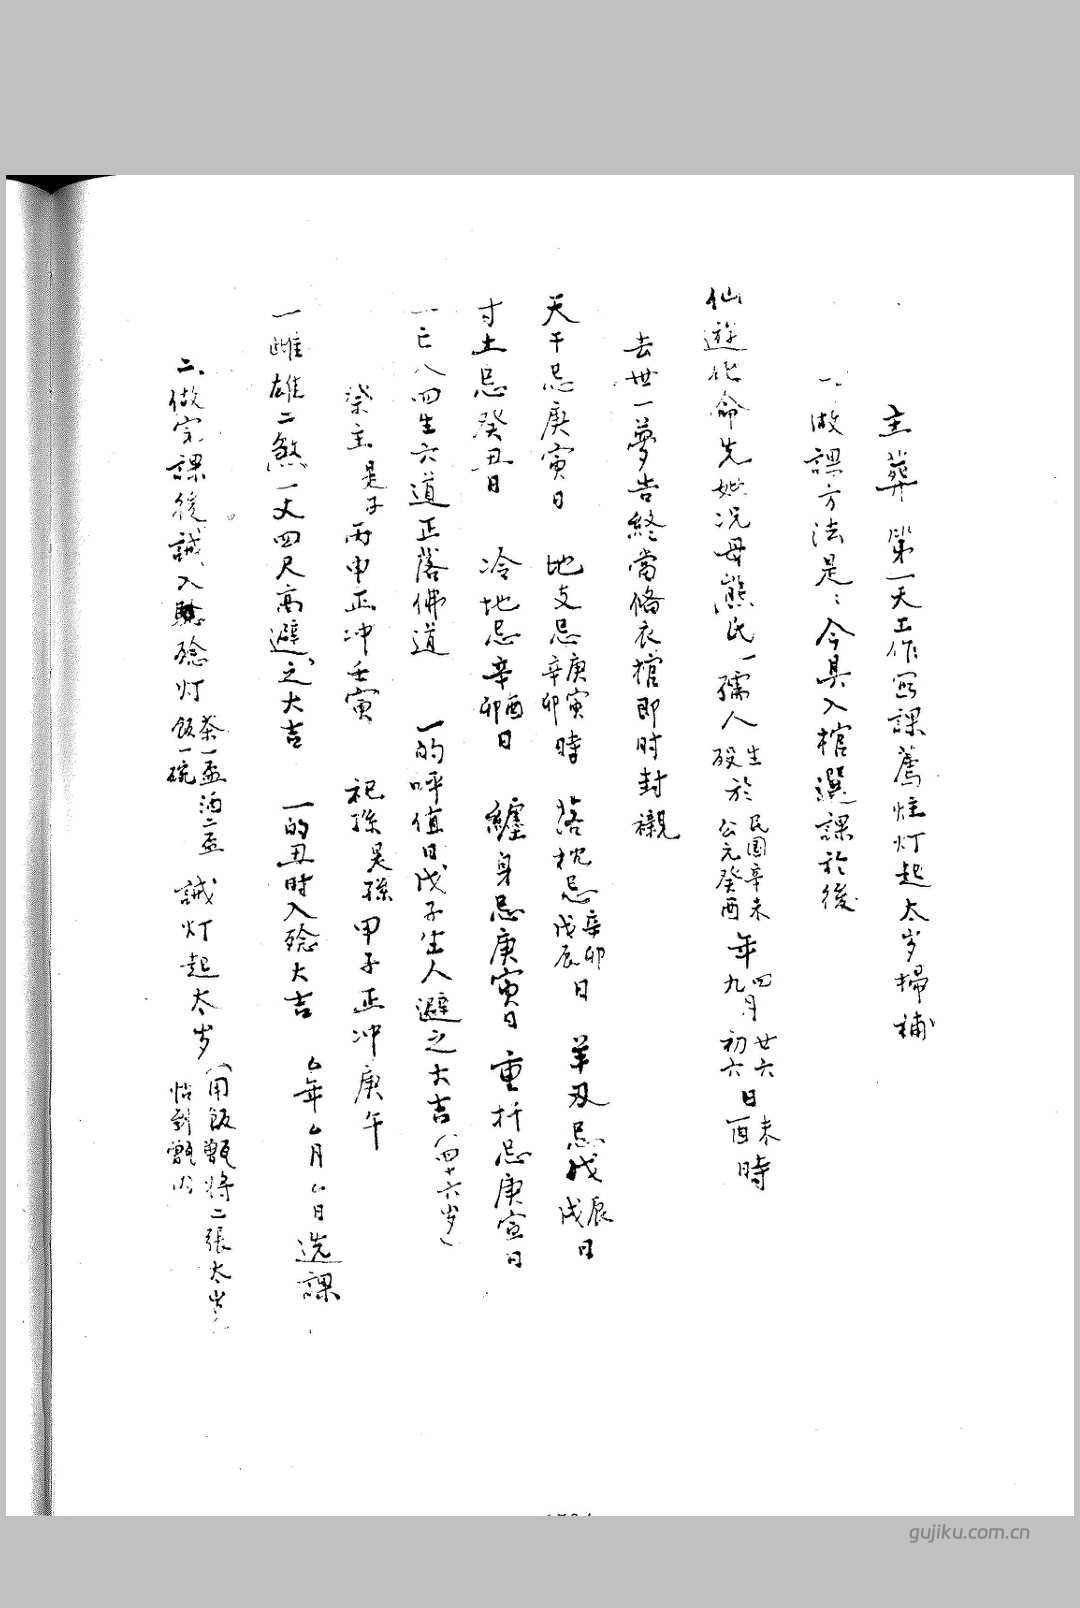 主葬 第一天工作写課薦炷灯起太岁掃補
一、做課方法是：今具入棺選課於後
仙遊化命先妣况母熊氏一孺人 生殁於 民国辛未 公元癸酉 年 四九月 廿六 初六 日 未酉 時
去世一夢告終當俻衣棺即时封襯
天干忌庚寅日 地支忌庚寅辛卯時 落枕忌辛卯戊辰日 羊刃忌戊辰戊戌日
寸土忌癸丑日 冷地忌辛酉辛卯日 纏身忌庚寅日 重忌庚寅日
一亡八四生六道正落佛道 一的呼值日戊子生人避之大吉（四十六岁）
祭主是子丙申正冲壬寅 祀孫是孫甲子正冲庚午
一雌雄二煞一丈四尺高避之大吉 一的丑时入殮大吉 年月日选課
二、做完課後誠入殮灯 茶一盃 飯一碗 酒二盃 誠灯起太岁（用飯甑将二張太岁 甑内
gujiku.com.cn